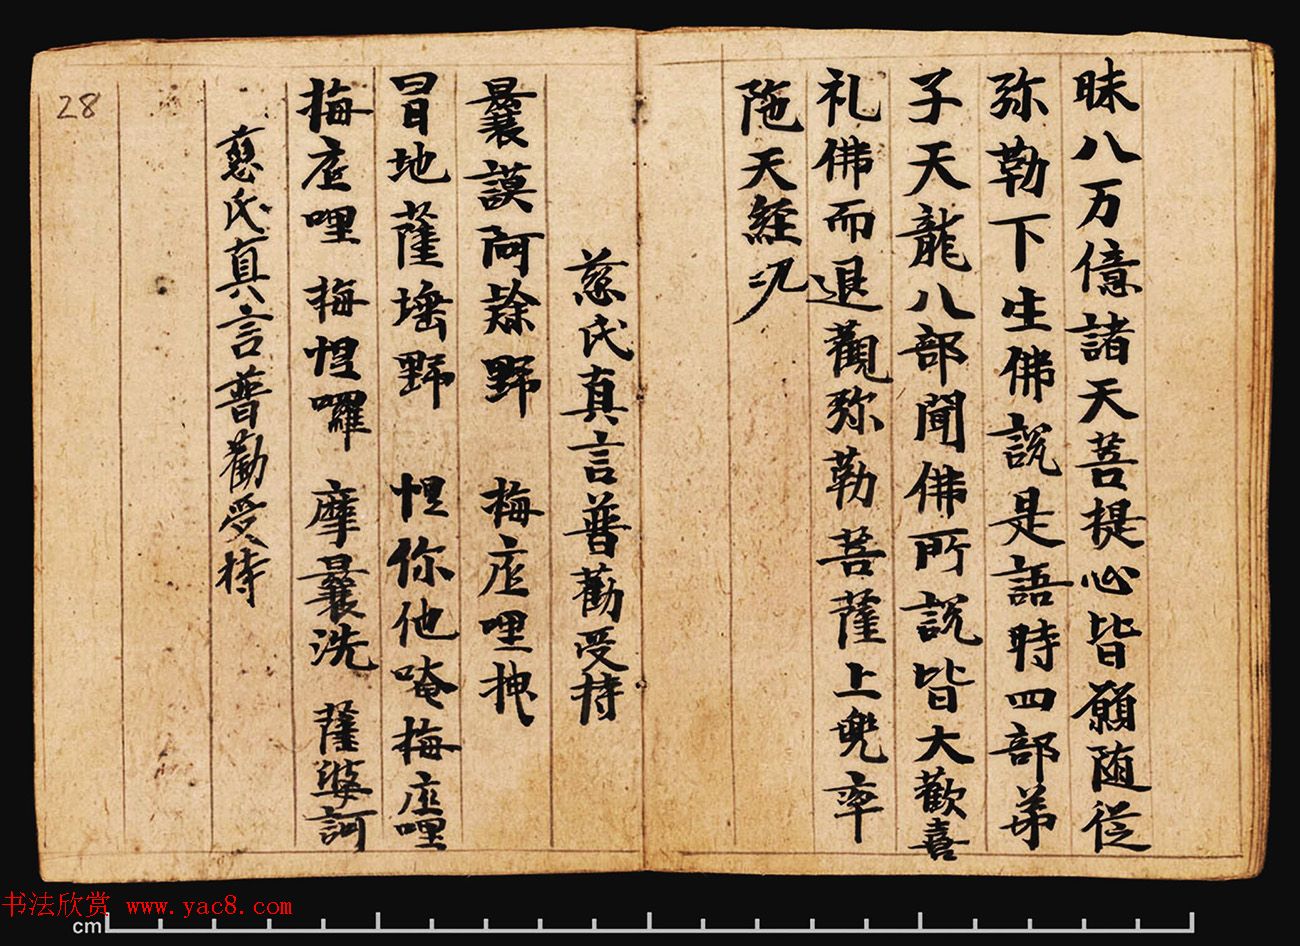 昧八万億諸天菩提心皆願随從
弥勒下生佛說是語時四部弟
子天龍八部聞佛所說皆大歡喜
礼佛而退觀弥勒菩薩上兜率
陁天經
慈氏真言普勸受持
曩謨阿野 梅底哩拽
冒地薩野 怛你他唵梅底哩
梅底哩 梅怛囉 摩曩洗 薩婆訶
慈氏真言普勸受持
28
书法欣赏 www.yac8.com
cm